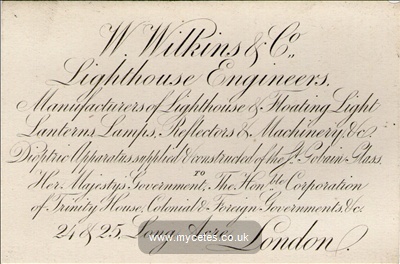 W. Wilkins & Co.
Lighthouse Engineers.
Manufacturers of Lighthouse & Floating Light
Lanterns Lamps, Reflectors & Machinery, &c.
Dioptric Apparatus supplied & constructed of the St. Gobain Glass.
TO
Her Majestys Government, The Honble. Corporation
of Trinity House, Colonial & Foreign Governments, &c.
24 & 25, Long Acre, London.
www.mycetes.co.uk